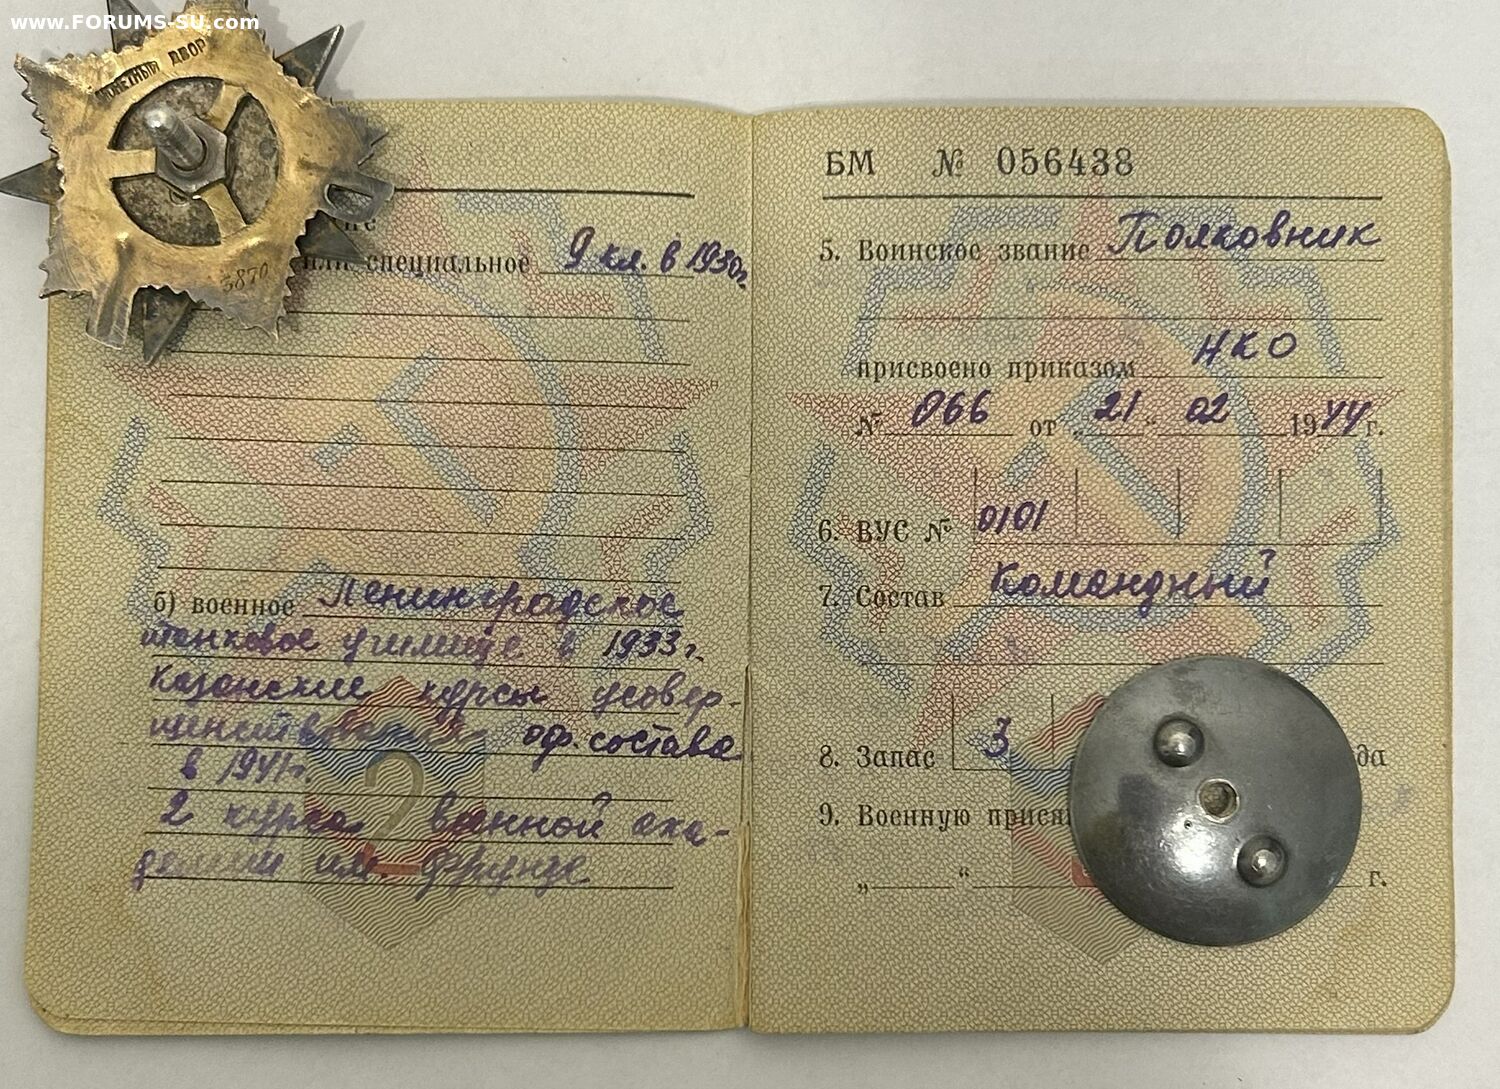 www.FORUMS-SU.com
МОНЕТНЫЙ ДВОР
3870
или специальное 9 кл. в 1930г.
б) военное Ленинградское
танковое училище в 1933г.
Казанские курсы усовер-
шенствования оф. состава
в 1941г.
2 курса военной ака-
демии им. Фрунзе
2
БМ № 056438
5. Воинское звание Полковник
присвоено приказом НКО
№ 066 от „21“ 02 1944 г.
6. ВУС № 0101
7. Состав Командный
8. Запас 3 да
9. Военную прися
„ “ г.